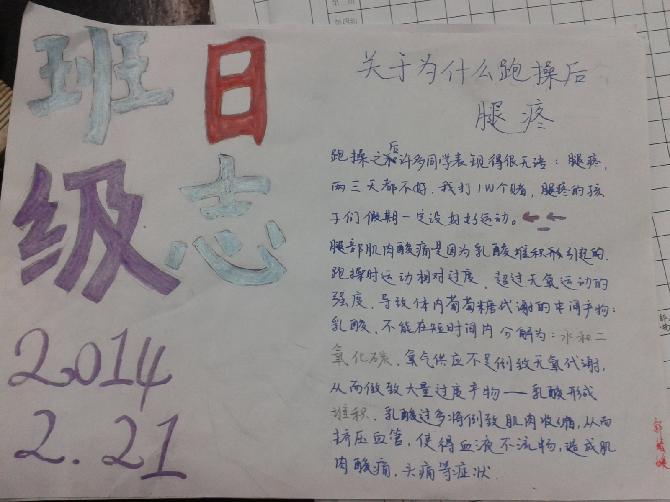 班级
日志
2014
2.21
关于为什么跑操后
腿疼
跑操之后许多同学表现得很无语：腿疼，
两三天都不好．我打1W个赌，腿疼的孩
子们假期一定没出去运动。
腿部肌肉酸痛是因为乳酸堆积形引起的．
跑操时运动相对过度．超过无氧运动的
强度．导致体内葡萄糖代谢的中间产物：
乳酸．不能在短时间内分解为：水和二
氧化碳．氧气供应不足倒致无氧代谢，
从而做致大量过度产物——乳酸形成
堆积．乳酸过多将倒致肌肉收缩，从而
挤压血管，使得血液不流物，造成肌
肉酸痛，头痛等症状．